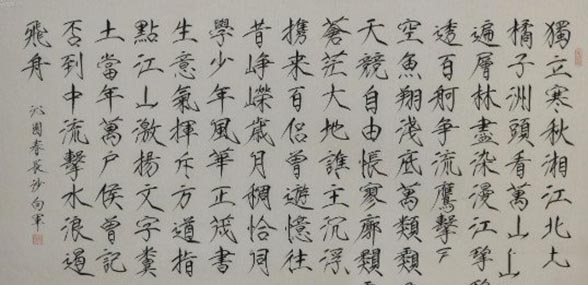 獨立寒秋湘江北
橘子洲頭看萬山
遍層林盡染漫江
透百舸争流鷹擊
空魚翔淺底萬類
天競自由悵寥廓
蒼茫大地誰主沉浮
携来百侣曾遊憶往
昔崢嶸歲月稠恰同
學少年風華正茂書
生意氣揮斥方遒指
點江山激揚文字糞
土當年萬户侯曾記
否到中流擊水浪遏
飛舟
沁園春長沙向軍